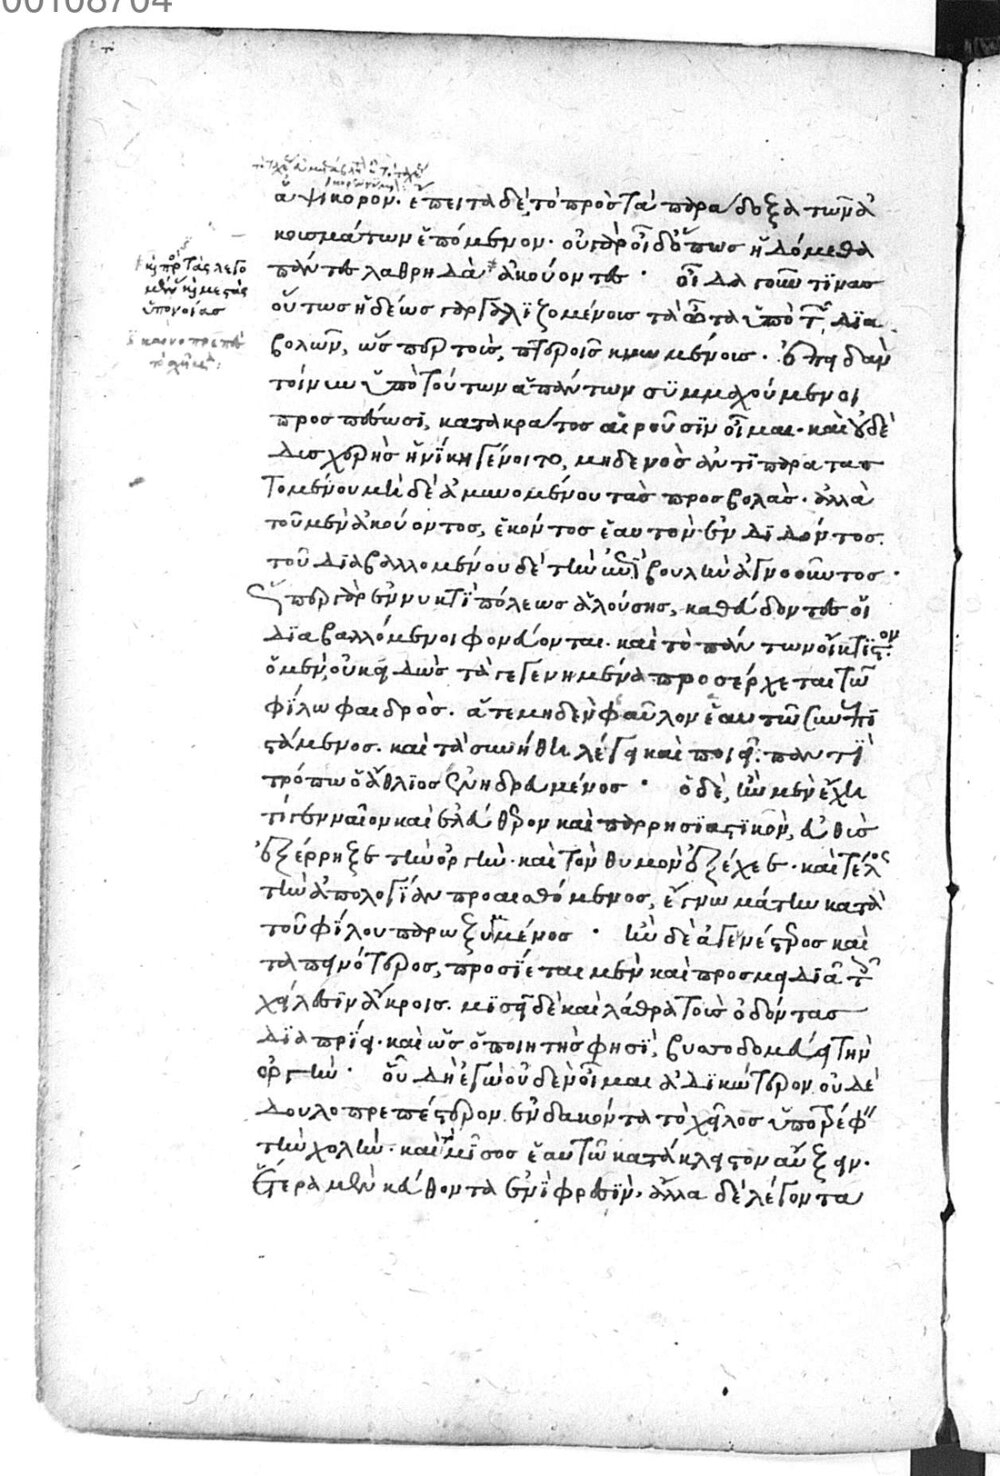 ἁψίκορον. ἔπειτα δὲ, τὸ πρὸς τὰ παράδοξα τῶν ἀ
κουσμάτων ἑπόμενον. οὐ γὰρ οἶδ' ὅπως ἡδόμεθα
πάντες λαθρηδὰ ἀκούοντες · οἶδα γοῦν τινας
οὕτως ἡδέως γαργαλιζομένους τὰ ὦτα ὑπὸ τῶν δια
βολῶν, ὥσπερ τοὺς πτεροῖς κνωμένους. ἐπειδὰν
τοίνυν ὑπὸ τούτων ἁπάντων συμμαχούμενοι
προσπέσωσι, κατὰ κράτος αἱροῦσιν οἶμαι. καὶ οὐδὲ
δυσχερὴς ἡ νίκη γένοιτο, μηδενὸς ἀντιπαρατατ
τομένου μηδὲ ἀμυνομένου τὰς προσβολάς. ἀλλὰ
τοῦ μὲν ἀκούοντος, ἑκόντος ἑαυτὸν ἐνδιδόντος.
τοῦ διαβαλλομένου δὲ τὴν ἐπιβουλὴν ἀγνοοῦντος.
ὥσπερ γὰρ ἐν νυκτὶ πόλεως ἁλούσης, καθεύδοντες οἱ
διαβαλλόμενοι φονεύονται. καὶ τὸ πάντων οἴκτιστον
ὁ μὲν, οὐκ εἰδὼς τὰ γεγενημένα προσέρχεται τῷ
φίλῳ φαιδρός. ἅτε μηδὲν φαῦλον ἑαυτῷ συνεπι
στάμενος. καὶ τὰ συνήθη λέγει καὶ ποιεῖ. παντὶ
τρόπῳ ὁ ἄθλιος ἐνηδρευμένος · ὁ δὲ, ἢν μὲν ἔχῃ
τι γενναῖον καὶ ἐλεύθερον καὶ παρρησιαστικὸν, εὐθὺς
ἐξέρρηξε τὴν ὀργήν. καὶ τὸν θυμὸν ἐξέχεε. καὶ τέλος
τὴν ἀπολογίαν προσιέμενος, ἔγνω μάτην κατὰ
τοῦ φίλου παρωξυμμένος · ἢν δὲ ἀγενέστερος καὶ
ταπεινότερος, προσίεται μὲν καὶ προσμειδιᾷ τοῖς
χείλεσιν ἄκροις. μισεῖ δὲ καὶ λάθρα τοὺς ὀδόντας
διαπρίει. καὶ ὡς ὁ ποιητής φησι, βυσσοδομεύει τὴν
ὀργήν · οὗ δὴ ἐγὼ οὐδὲν οἶμαι ἀδικώτερον οὐδὲ
δουλοπρεπέστερον ἐνδακόντα τὸ χεῖλος ὑποτρέφειν
τὴν χολήν. καὶ τὸ μῖσος ἑαυτῷ κατάκλειστον αὔξειν.
ἕτερα μὲν κεύθοντα ἐνὶ φρεσὶν, ἄλλα δὲ λέγοντα
καὶ πρὸς τὸ οὖς λεγό
μενα καὶ μεστὰς
ὑπονοίας